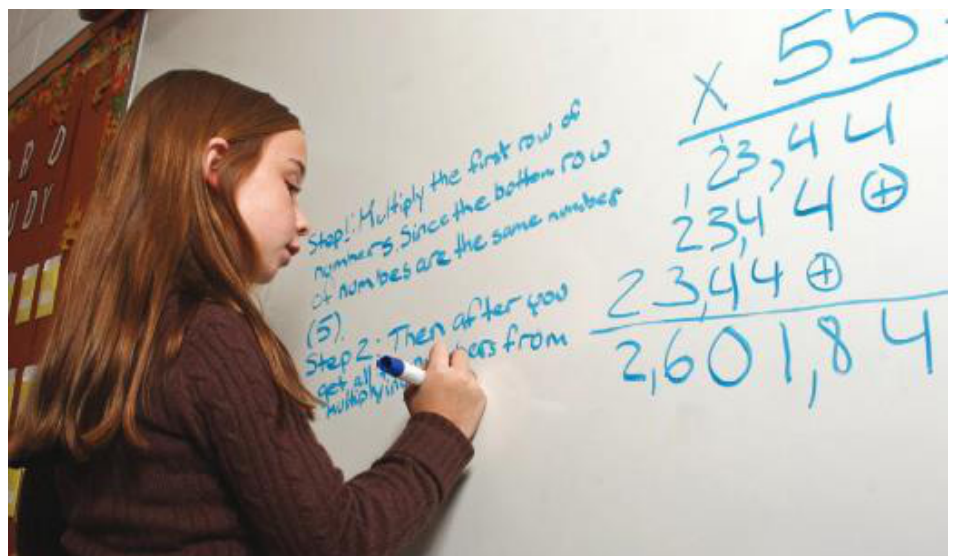 A R D
UDY
Step1: Multiply the first row of
numners. Since the bottom row
of numbes are the same number
(5).
Step 2: Then after you
get all from
multiplying
x 55
23,44
23,4 4 ⊕
23,44 ⊕
2,601,84